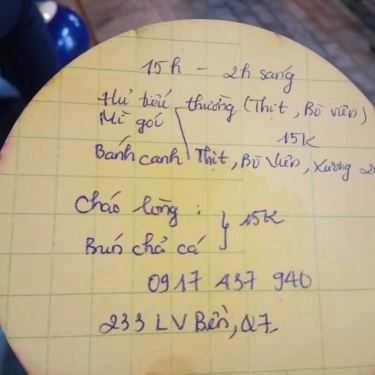 15h - 2h sáng
Hủ tiếu thường (Thịt, Bò viên)
Mì gói
15K
Bánh canh Thịt, Bò Viên, Xương
Cháo lòng : 15K
Bún chả cá
0917 437 940
233 LV Bền, Q7